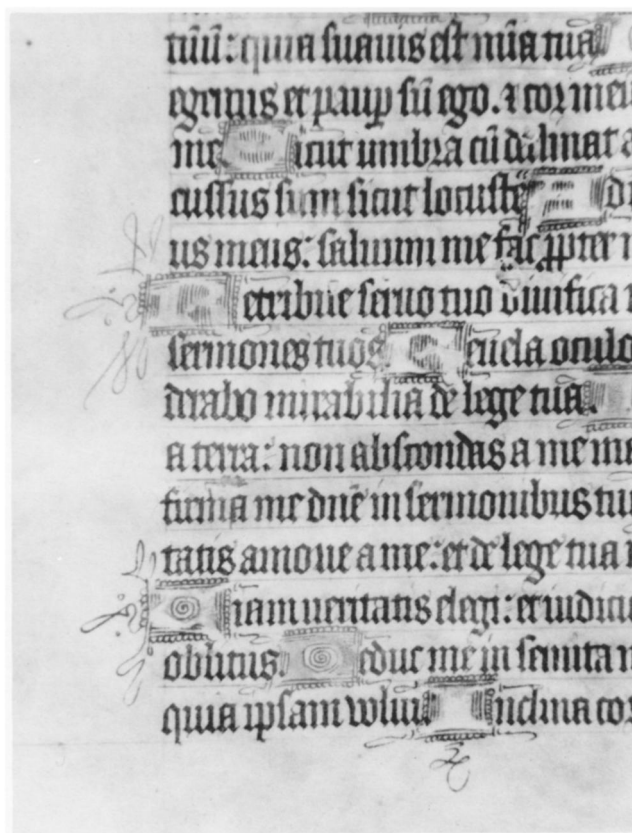 tuū: quia suauis est mīa tua
egenus et paup sū ego. ⁊ cor meu
me icut umbra cū declinat a
cussus sum sicut locuste d
us meus: saluum me fac ppter m
etribue seruo tuo viuifica
sermones tuos euela oculo
derabo mirabilia de lege tua
a terra: non abscondas a me
firma me dñe in sermonibus tu
tatis amoue a me: et de lege tua
iam ueritatis elegi: et iudicia
oblitus educ me in semita m
quia ipsam volui nclina cor